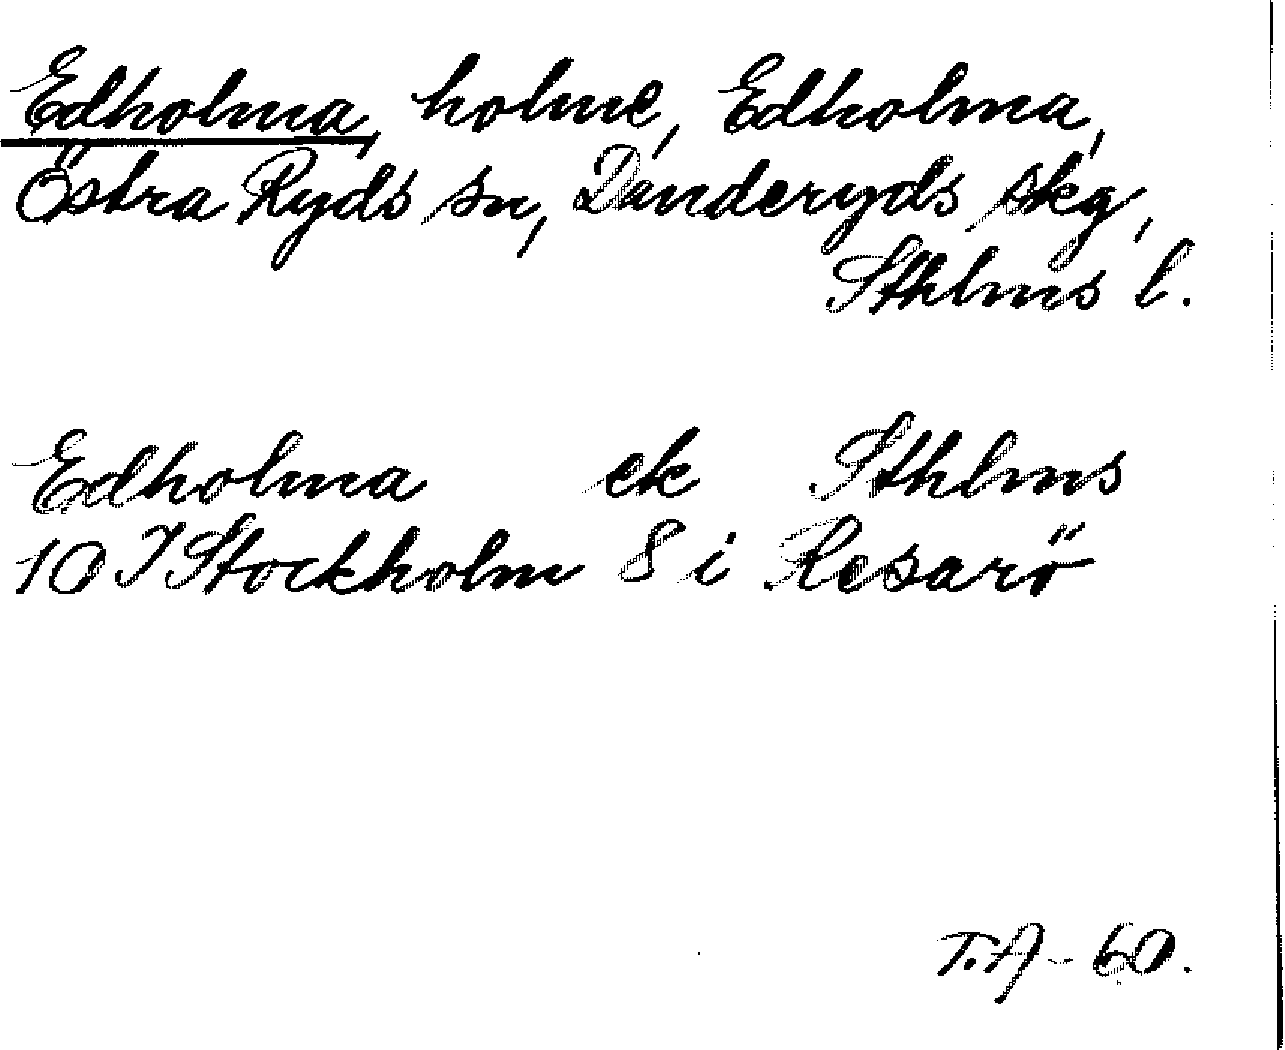 Edholma, holme, Edholma,
Östra Ryds sn, Danderyds skg,
Sthlms l.
Edholma ek Sthlms
10 I Stockholm 8 i Resarö
T.A - 60.